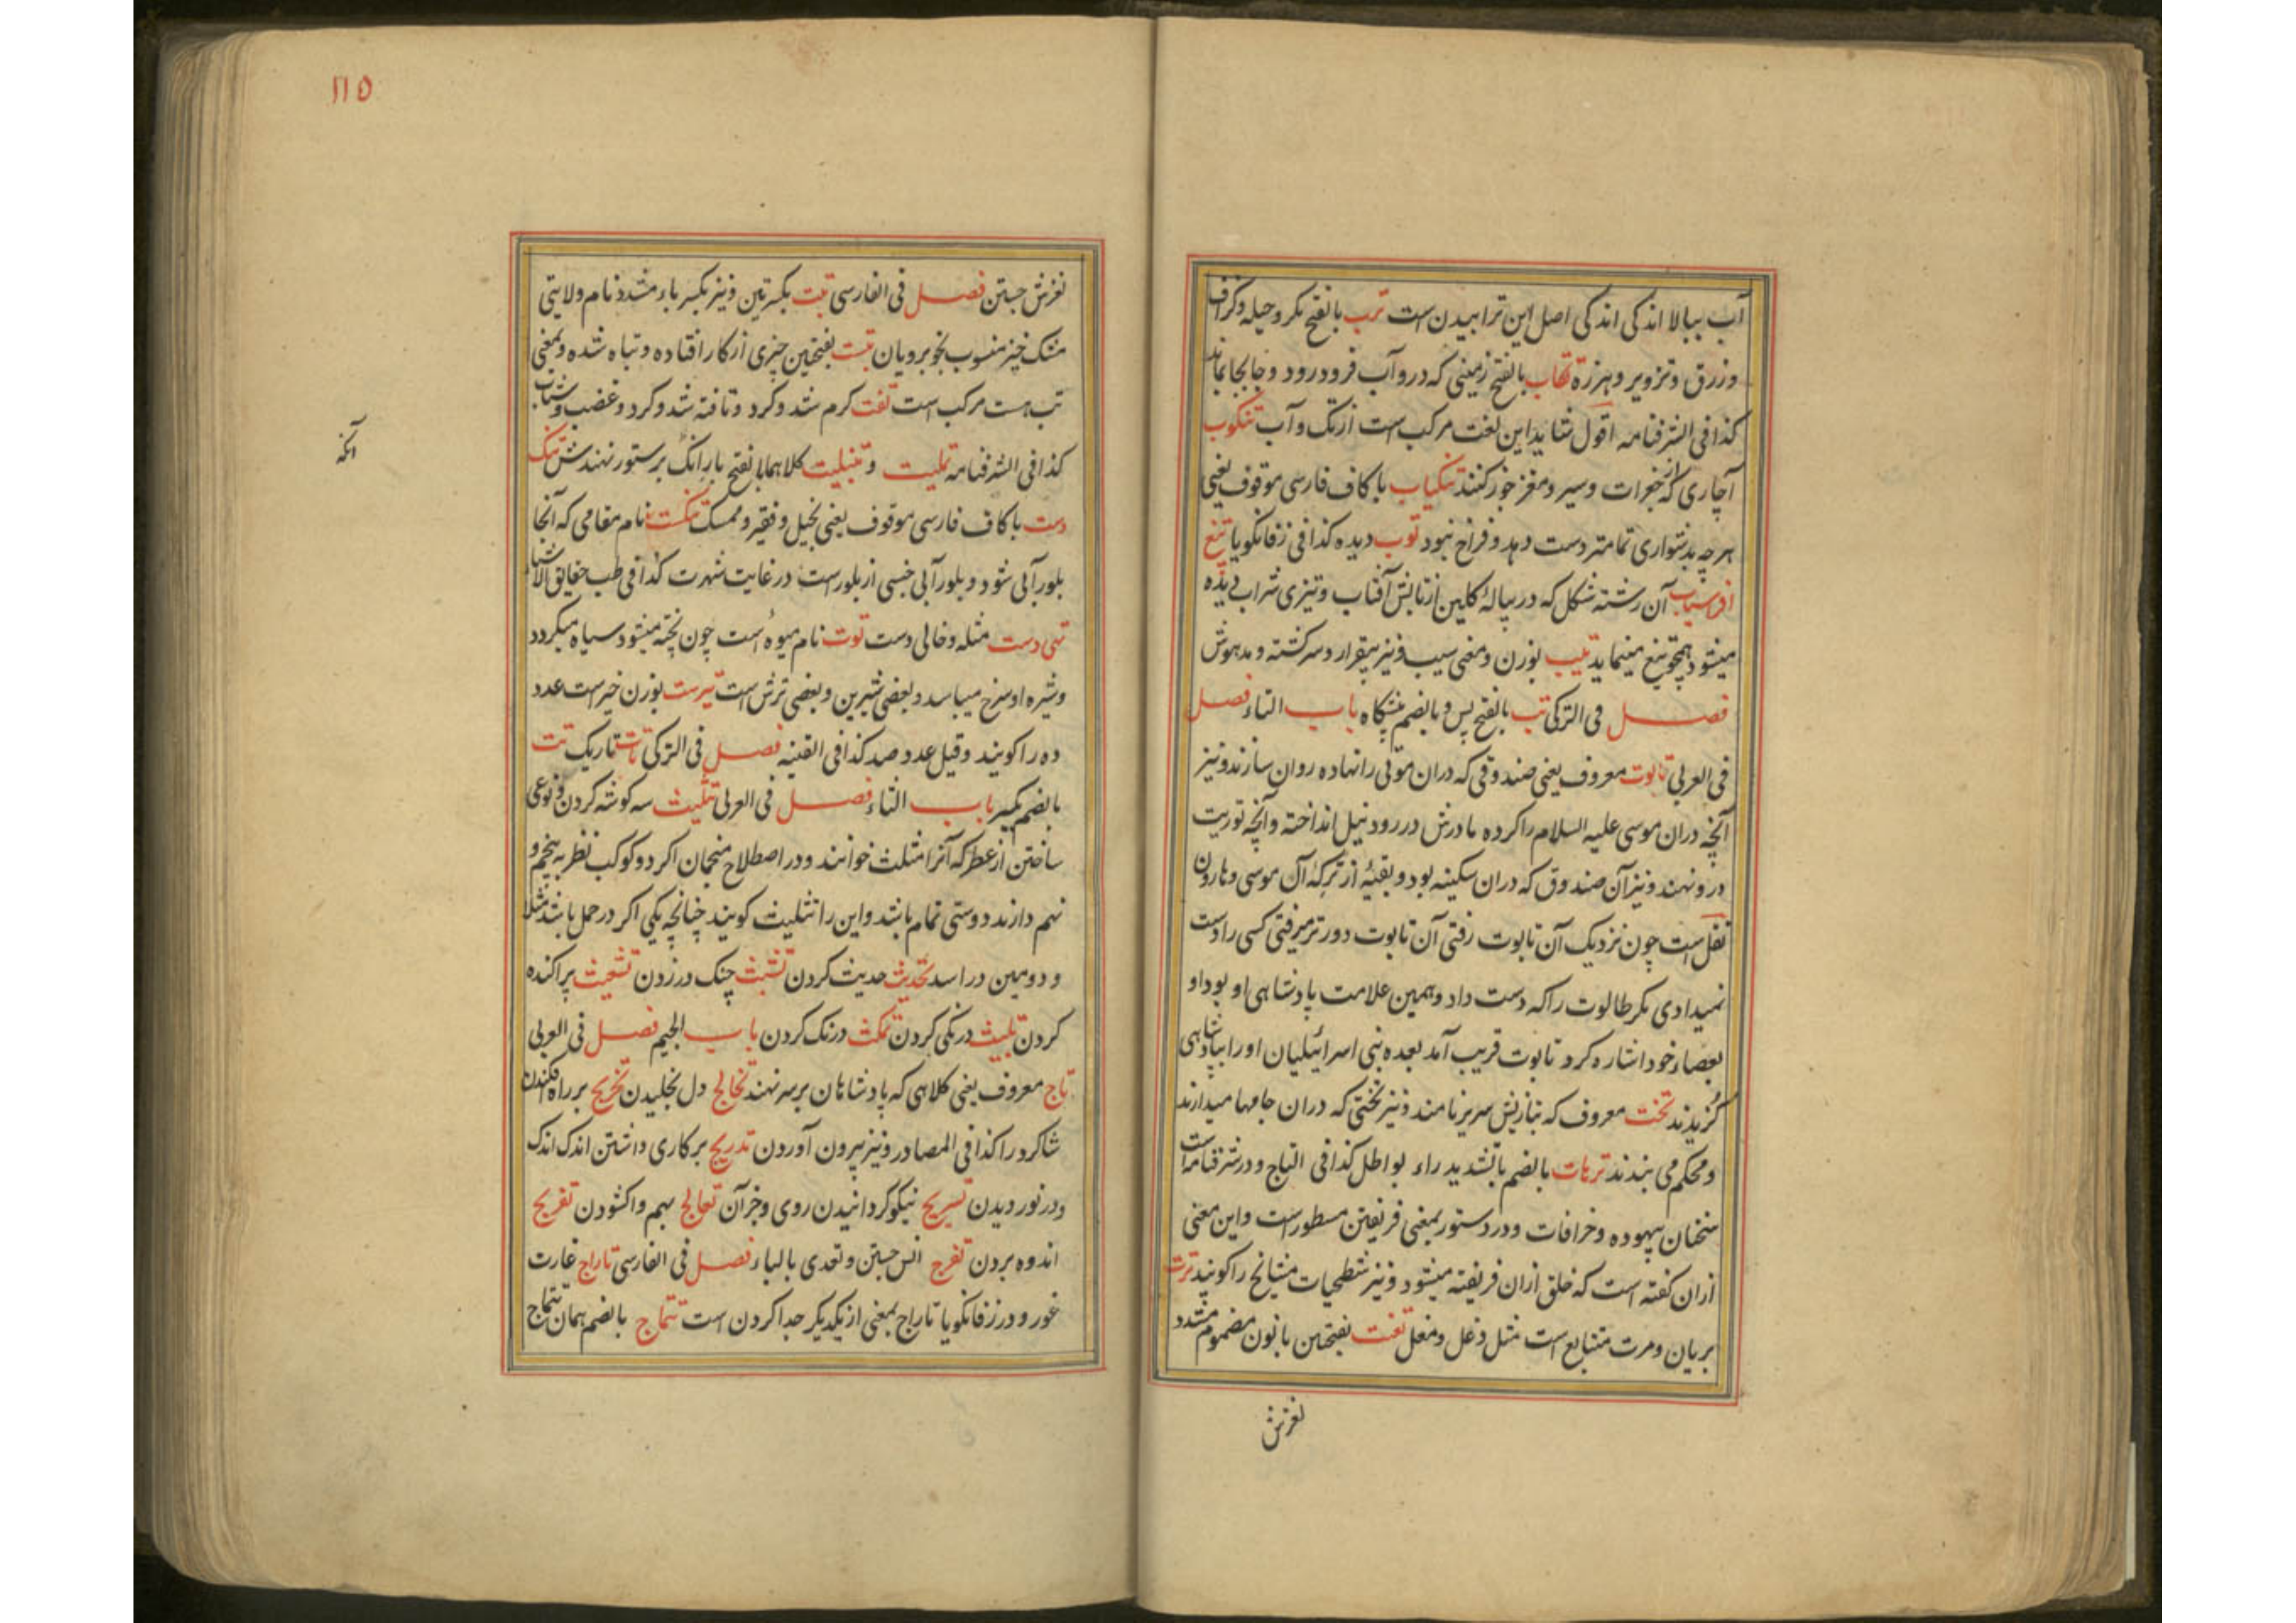 آب ببالا اندکی اندکی اصل این ترابیدن است ترب بالفتح مکر و حیله و گزاف
و زرق و تزویر و هرزه تکاب بالفتح زمینی که درو آب فرو رود و جابجا بماند
کذا فی الشرفنامه اقول شاید این لغت مرکب است از تک و آب تنکوب
آچاری که از جغرات و سیر و مغز جوز کنند تنکیاب با کاف فارسی موقوف یعنی
هر چه بدشواری تمامتر دست دهد و فراخ نبود توب دیده کذا فی زفانگویا تیغ
افراسیاب آن رشته شکل که در پیاله گلین از تابش آفتاب و تیزی شراب دیده
میشود همچو تیغ مینماید تیب بوزن و معنی سیب و نیز بیقرار و سرگشته و مدهوش
فصل فی الترکی تب بالفتح پس و بالضم پیشگاه باب التاء فصل
فی العربی تابوت معروف یعنی صندوقی که دران موتی را نهاده روان سازند و نیز
آنچه دران موسی علیه السلام را کرده مادرش در رود نیل انداخته و آنچه توریت
درو نهند و نیز آن صندوق که دران سکینه بود و بقیهٔ از ترکهٔ آل موسی و هارون
نقل است چون نزدیک آن تابوت رفتی آن تابوت دورتر میرفتی کسی را دست
نمیدادی مگر طالوت را که دست داد و همین علامت پادشاهی او بود او
بعصاء خود اشاره کرد تابوت قریب آمد بعده بنی اسرائیلیان او را بپادشاهی
گزیدند تخت معروف که بتازیش سریر نامند و نیز تختی که دران جامها میدارند
و محکم می بندند ترهات بالضم بالتشدید راء بواطل کذا فی التاج و در شرفنامه است
سخنان بیهوده و خرافات و در دستور بمعنی فریفتن مسطور است و این معنی
ازان گفته است که خلق ازان فریفته میشود و نیز شطحیات مشایخ را گویند ترت
بریان و مرت متتابع است مثل دغل و مغل تعنت بفتحتین با نون مضموم مشدد
لغزش
١١٥
لغزش جستن فصل فی الفارسی تبت بکسرتین و نیز بکسر باء مشدد نام ولایتی
مشک خیز منسوب بخوبرویان تبست بفتحتین چیزی از کار افتاده و تباه شده و بمعنی
تب هست مرکب است تفت گرم شد و کرد و تافته شد و کرد و غضب و شتاب
کذا فی الشرفنامه تملیت و تنبلیت کلاهما بالفتح بار انک بر ستور نهندش تنک
دست با کاف فارسی موقوف یعنی بخیل و فقیر و ممسک تنکست نام مقامی که آنجا
بلور آبی شود و بلور آبی جنسی از بلور است در غایت شهرت کذا فی طب حقایق الاشیاء
تهی دست مثله و خالی دست توت نام میوه است چون پخته میشود سیاه میگردد
و شیره او سرخ میباشد و بعضی شیرین و بعضی ترش است تیرست بوزن خیرست عدد
ده را گویند و قیل عدد صد کذا فی القنیه فصل فی الترکی تات تاریک تت
بالضم بگیر باب الثاء فصل فی العربی تثلیث سه گوشه کردن و نوعی
ساختن از عطر که آنرا مثلث خوانند و در اصطلاح منجمان اگر دو کوکب نظر به پنجم و
نهم دارند دوستی تمام باشد و این را تثلیث گویند چنانچه یکی اگر در حمل باشد مثلا
و دومین در اسد تحدیث حدیث کردن تشبث چنگ در زدن تشعیث پراکنده
کردن تلبیث درنگی کردن تمکث درنگ کردن باب الجیم فصل فی العربی
تاج معروف یعنی کلاهی که پادشاهان بر سر نهند تخالج دل بخلیدن تخریج بر راه افکندن
شاگرد را کذا فی المصادر و نیز بیرون آوردن تدریج بر کاری داشتن اندک اندک
و در نوردیدن تسریج نیکو گردانیدن روی و جز آن تعالج بهم واکشودن تفریج
اندوه بردن تفرج انس جستن و تعدی بالباء فصل فی الفارسی تاراج غارت
غور و در زفانگویا تاراج بمعنی از یکدیگر جدا کردن است تتماج بالضم همان تتماج
آنکه